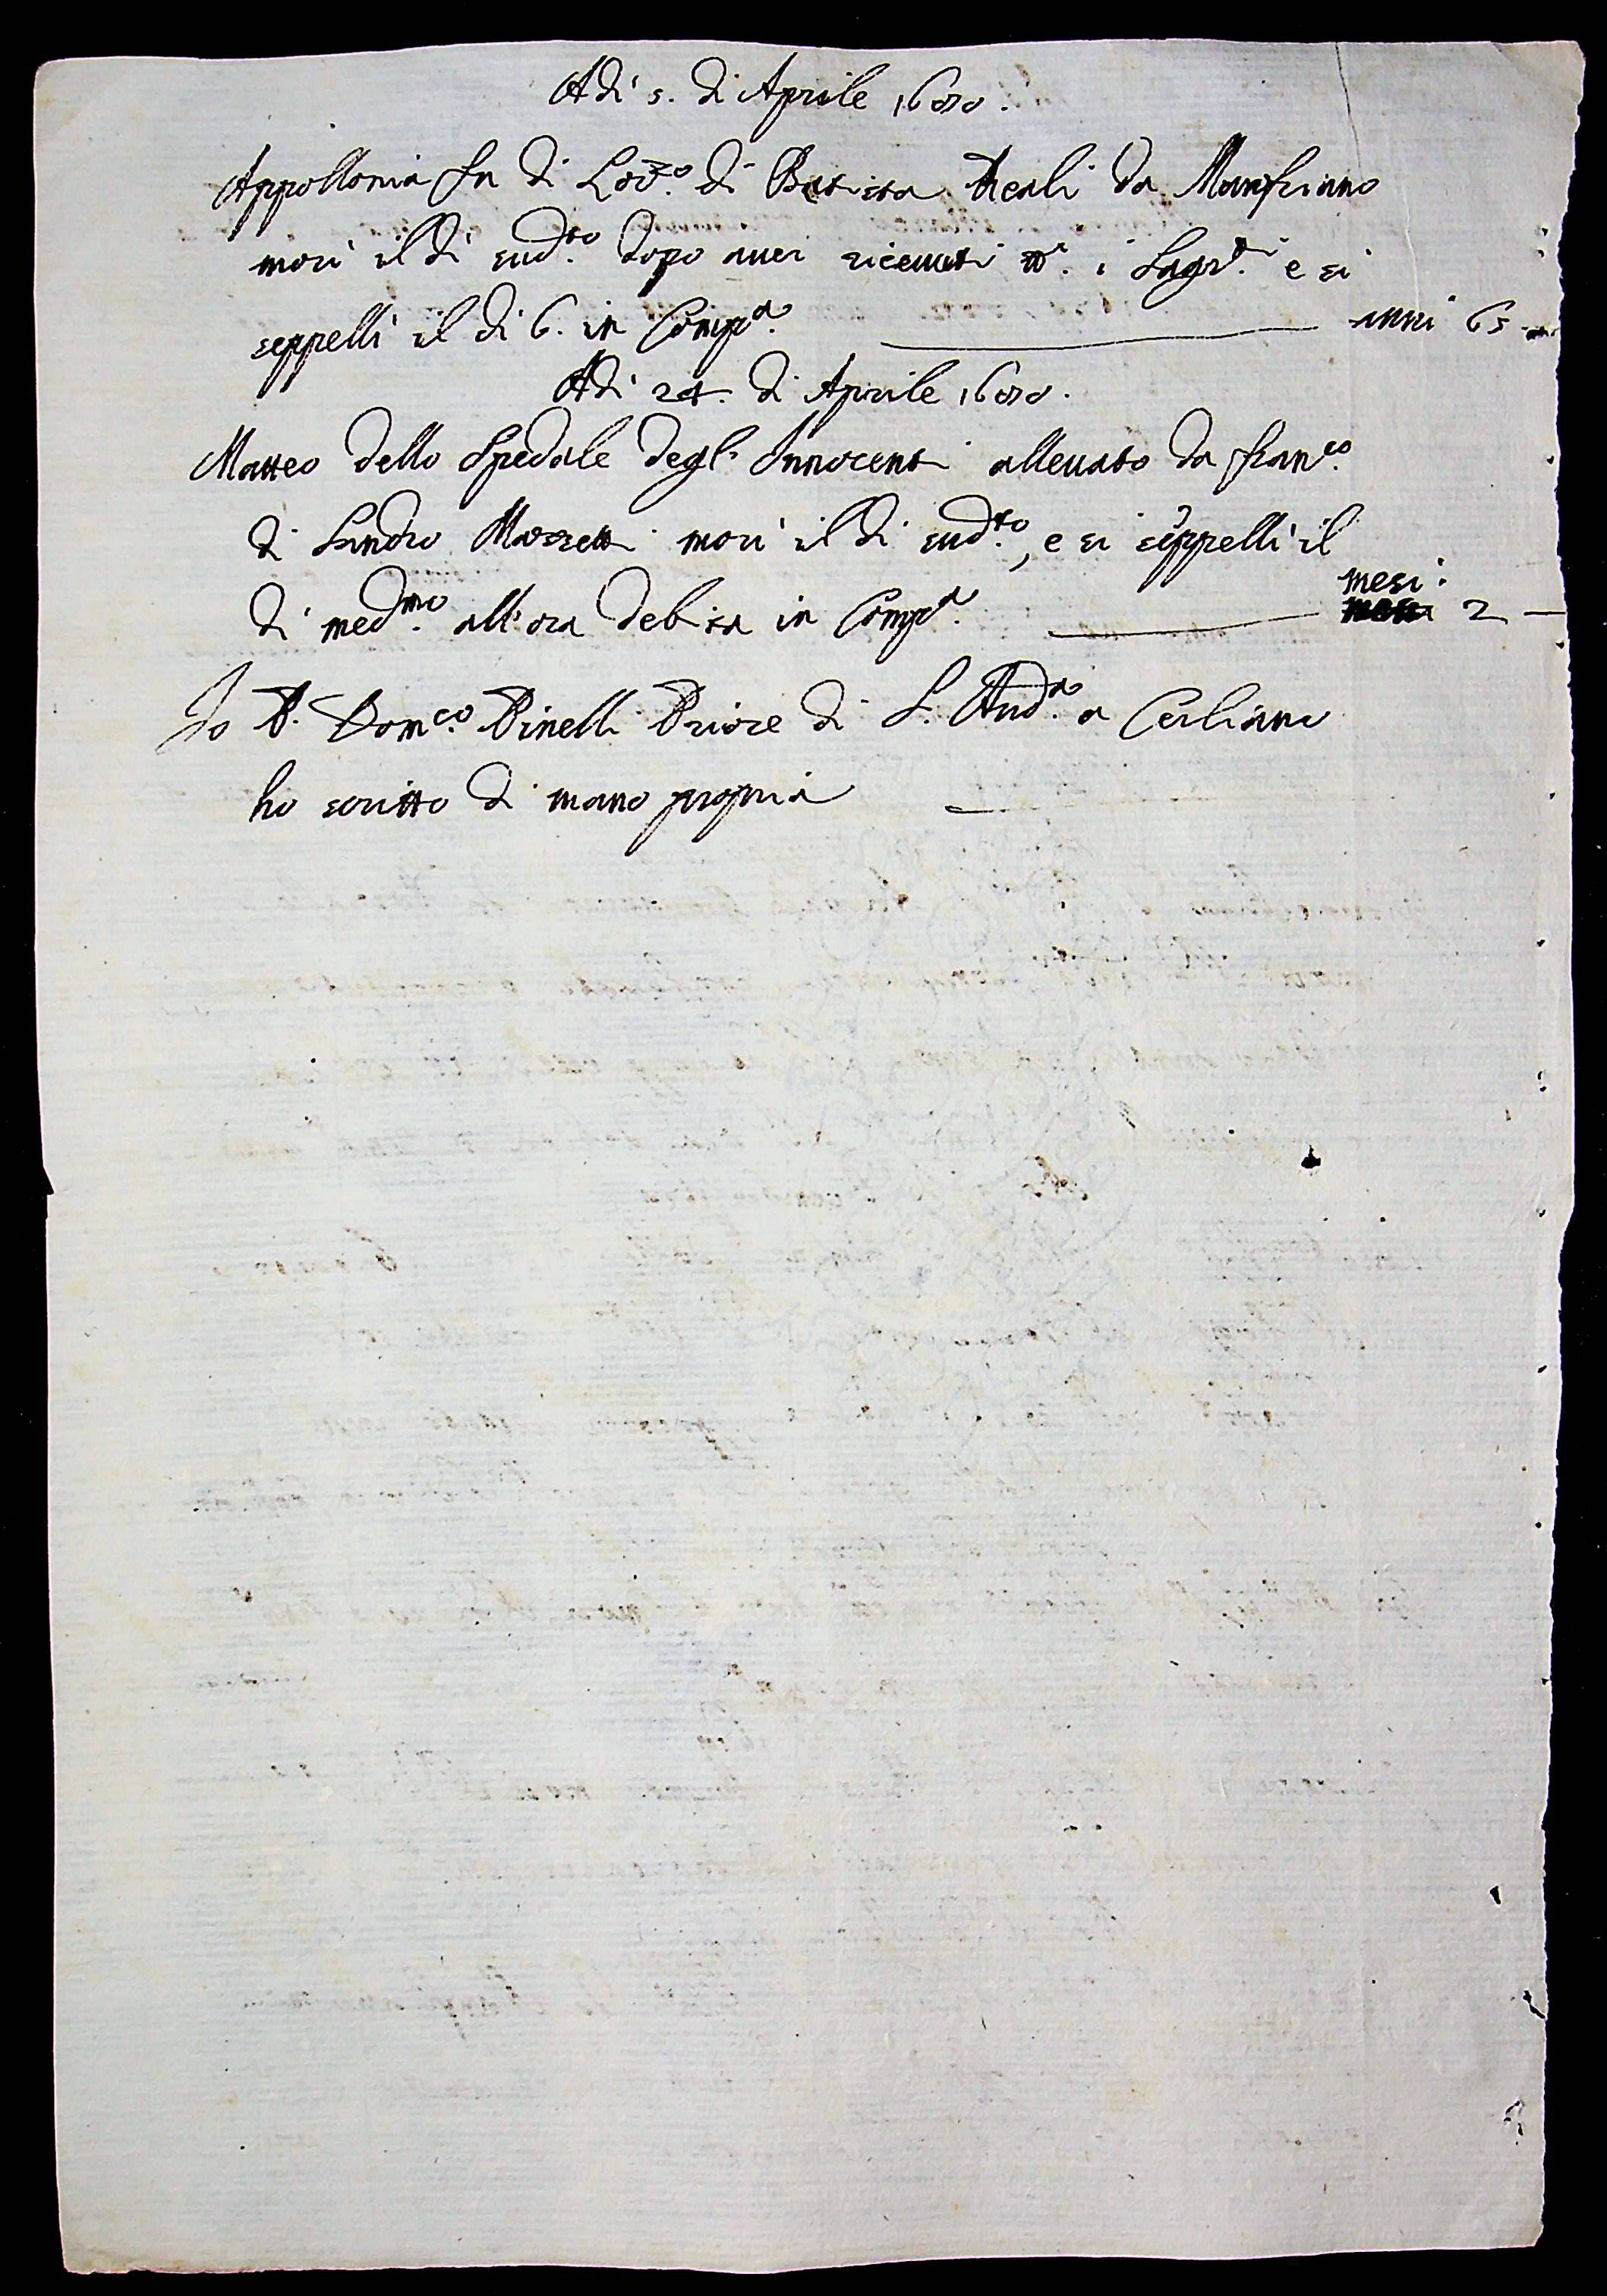 Adi 5. di Aprile 1680.
Appollonia fu di Lor.zo di Batista Reali da Manfriano
morì il dì sud.to dopo auer riceuuti tt.i i Sagr.ti e si
seppellì il dì 6. in Comp.a anni 65
Adi 24. di Aprile 1680.
Matteo dello Spedale degl' Innocenti alleuato da Fran.co
di Sandro morì il dì sud.to, e si seppellì il
dì med.mo all'ora debita in Comp.a mesi 2
Io P. Dom.co Pinelli Priore di S. And.a a Cerliano
ho scritto di mano propria